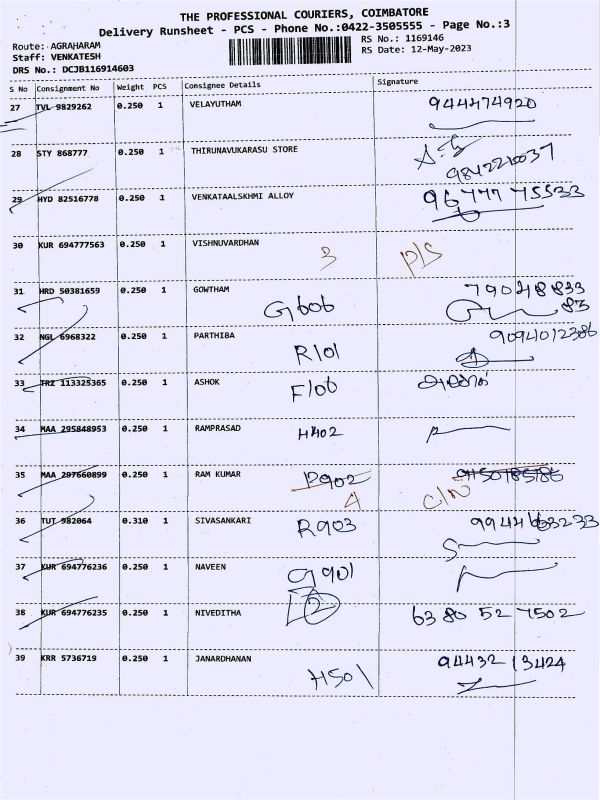 THE PROFESSIONAL COURIERS, COIMBATORE
Delivery Runsheet - PCS - Phone No.:0422-3505555 - Page No.:3
Route: AGRAHARAM RS No.: 1169146
Staff: VENKATESH RS Date: 12-May-2023
DRS No.: DCJB116914603
S No Consignment No Weight PCS Consignee Details Signature
27 TVL 9829262 0.250 1 VELAYUTHAM 944474920
28 STY 868777 0.250 1 THIRUNAVUKARASU STORE
9842210037
29 HYD 82516778 0.250 1 VENKATAALSKHMI ALLOY 96777 75533
30 KUR 694777563 0.250 1 VISHNUVARDHAN
3 P/S
31 HRD 50381659 0.250 1 GOWTHAM 79048833
G606 83
32 NGL 6968322 0.250 1 PARTHIBA 9094012386
R101
33 TRZ 113325365 0.250 1 ASHOK F106
34 MAA 295848953 0.250 1 RAMPRASAD H402
35 MAA 297660899 0.250 1 RAM KUMAR P902
4 C/N
36 TUT 982064 0.310 1 SIVASANKARI R903
37 KUR 694776236 0.250 1 NAVEEN G901
38 KUR 694776235 0.250 1 NIVEDITHA 2 6380 52 7502
39 KRR 5736719 0.250 1 JANARDHANAN 94432 13424
H501